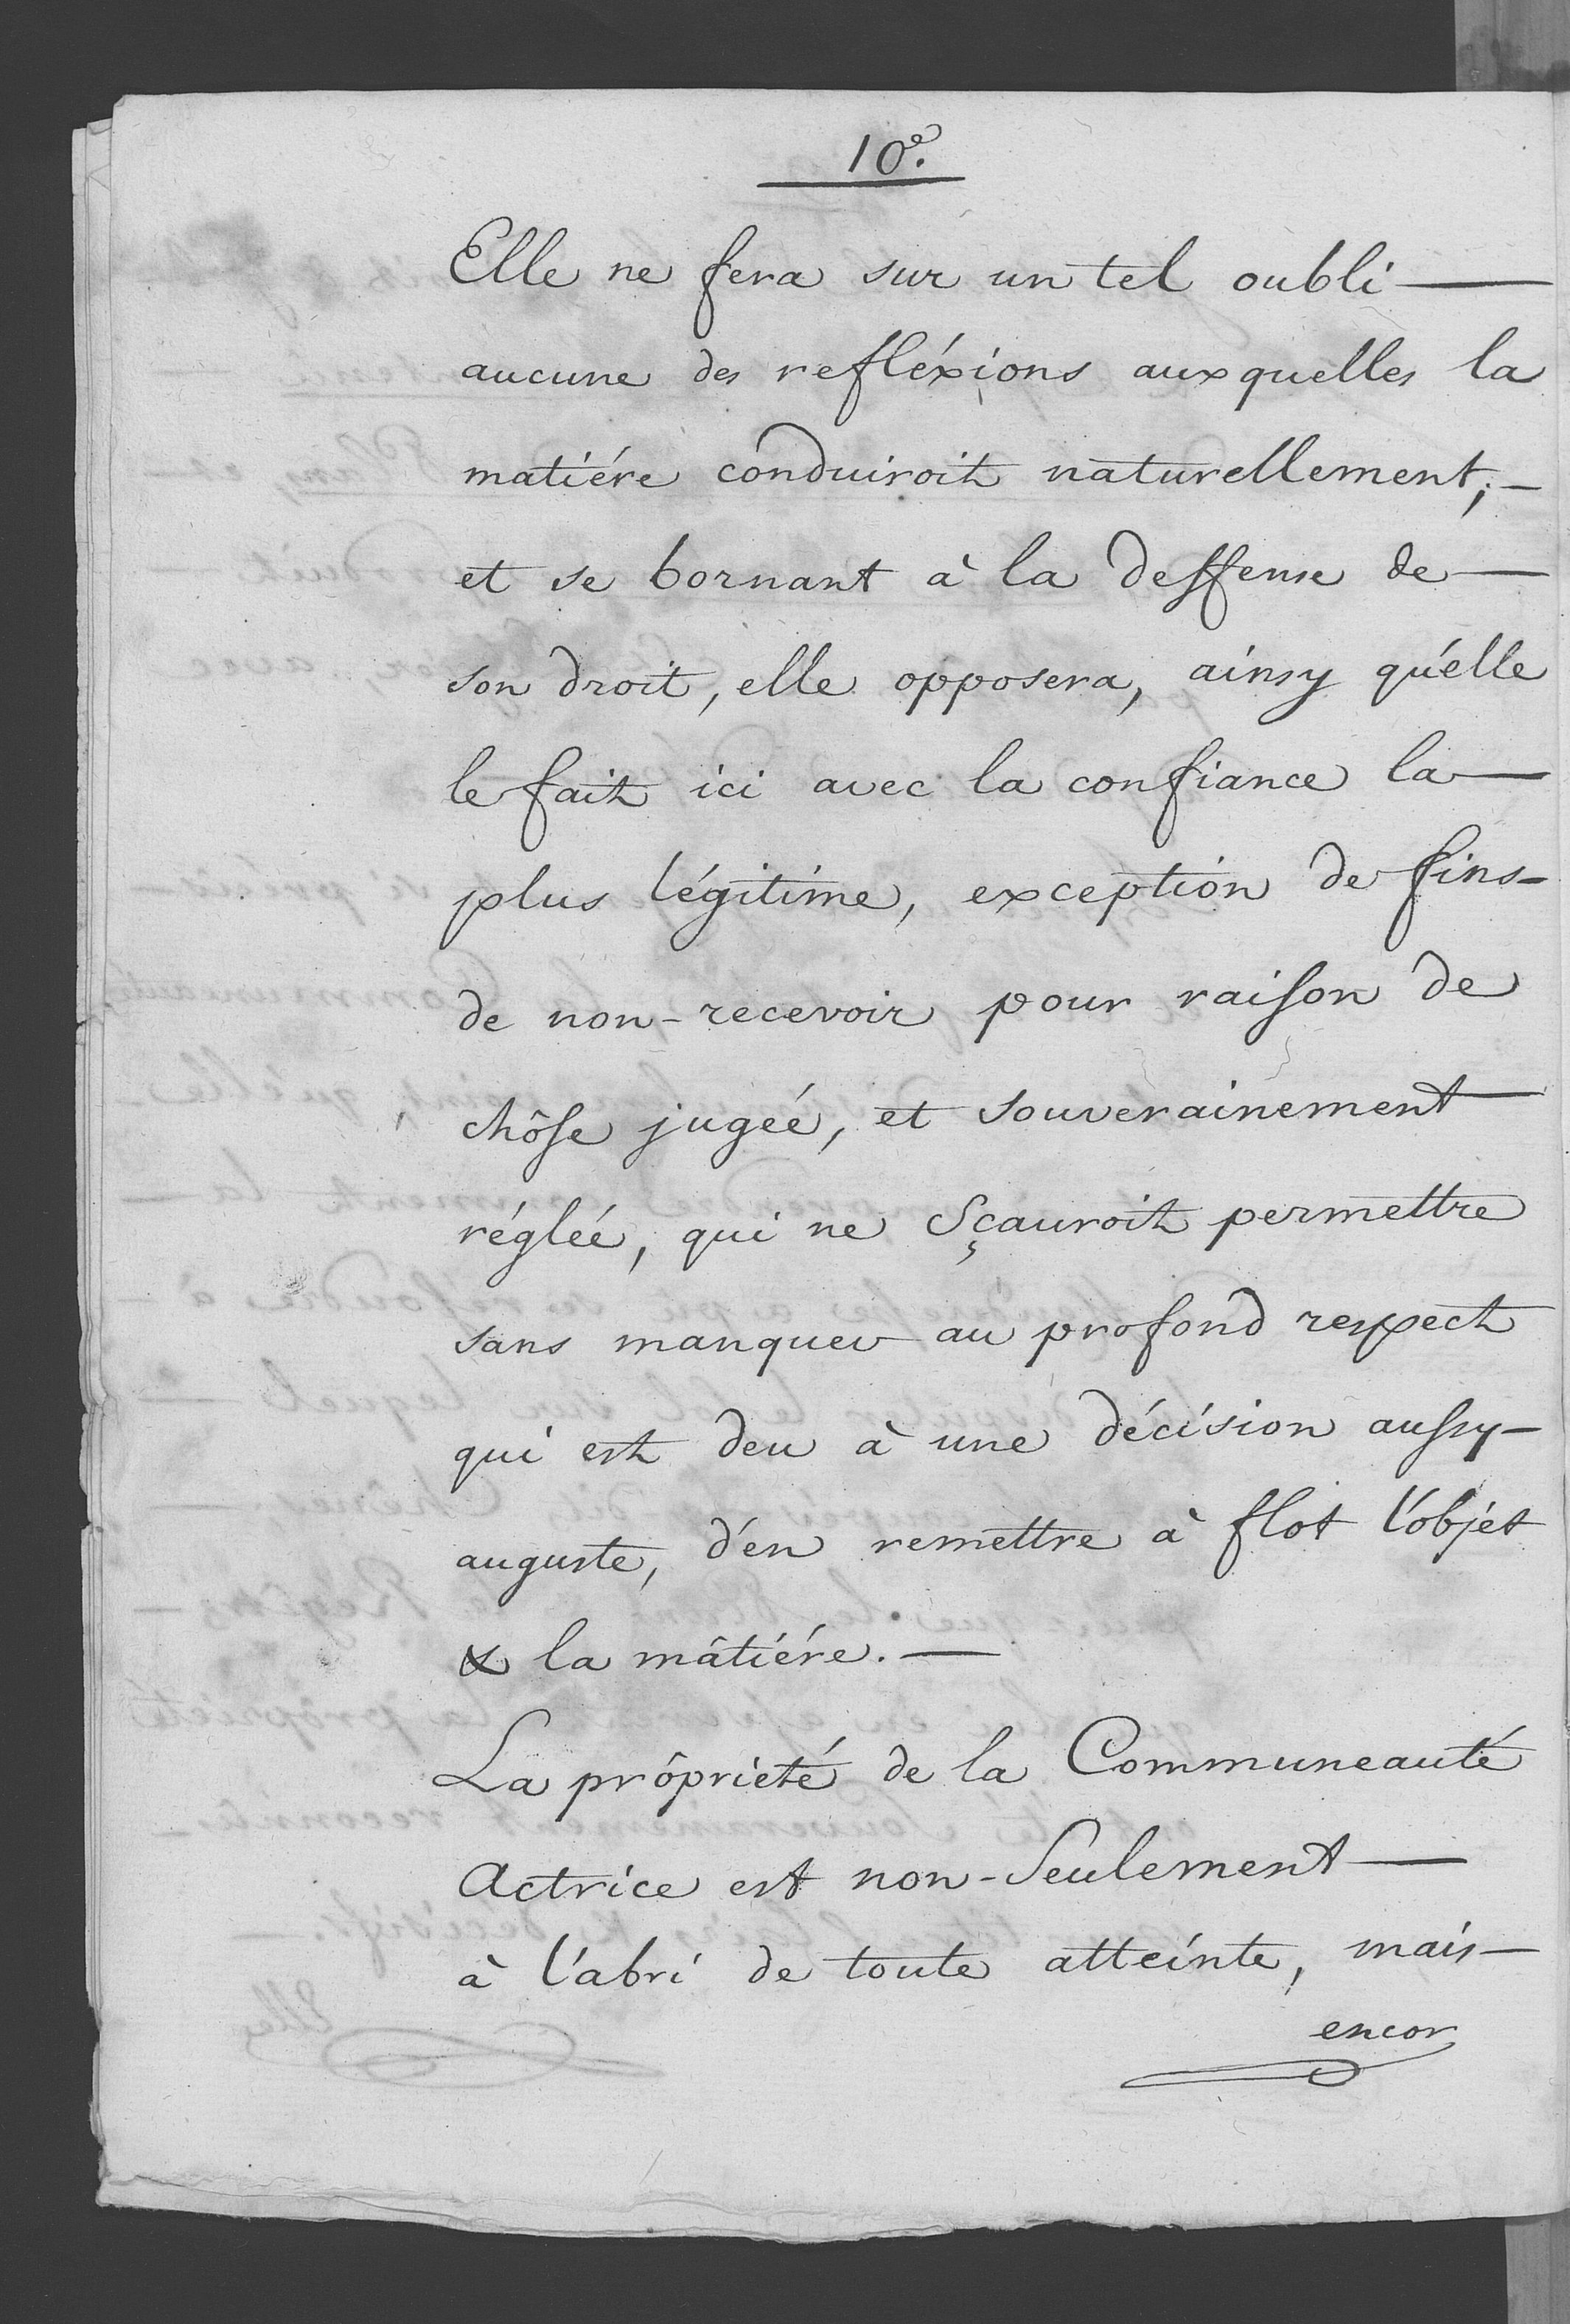 10e.
Elle ne fera sur un tel oubli —
aucune des refléxions auxquelles la
matiére conduiroit naturellement; —
et se bornant à la deffense de —
son droit, elle opposera, ainsy qu'elle
le fait ici avec la confiance la —
plus légitime, exception de fins —
de non-recevoir pour raison de
chôse jugeé, et souverainement
régleé, qui ne Sçauroit permettre
sans manquer au profond respect
qui est deu à une décision aussy —
auguste, d'en remettre à flot l'objet
& la mâtiére. —
La prôprieté de la Communeauté
Actrice est non-Seulement —
à l'abri de toute atteinte, mais —
encor